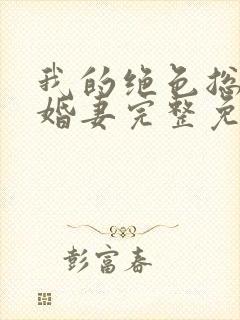 我的绝色总
婚妻完整免
彭富春